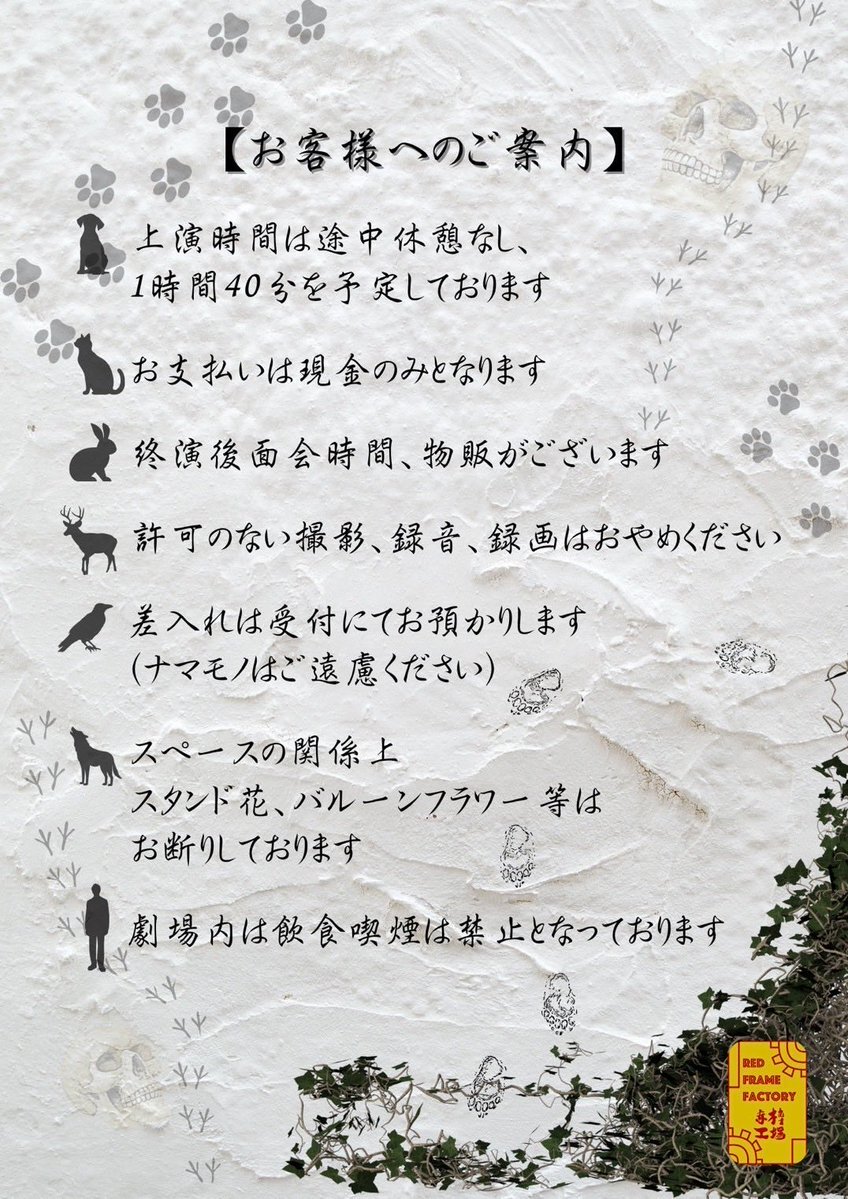 【お客様へのご案内】
上演時間は途中休憩なし、
1時間40分を予定しております
お支払いは現金のみとなります
終演後面会時間、物販がございます
許可のない撮影、録音、録画はおやめください
差入れは受付にてお預かりします
(ナマモノはご遠慮ください)
スペースの関係上
スタンド花、バルーンフラワー等は
お断りしております
劇場内は飲食喫煙は禁止となっております
RED
FRAME
FACTORY